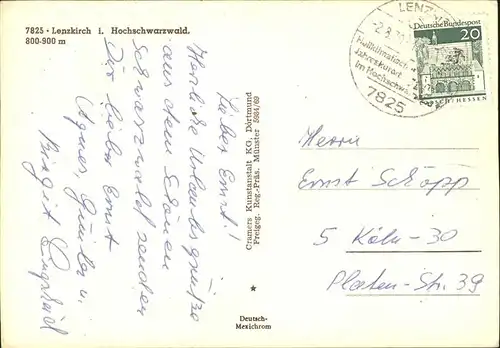 7825 · Lenzkirch i. Hochschwarzwald.
800-900 m
Lieber Ernst!
Herzliche Urlaubsgrüße
aus dem schönen
Schwarzwald senden
Dir lieber Ernst
Agnes, Günter u.
Birgit
Cramers Kunstanstalt KG, Dortmund
Freigeg. Reg.-Präs. Münster 5984/69
Deutsch-
Mexichrom
LENZ
Heilklimatischer
Jahreskurort
im Hochschw
7825
Deutsche Bundespost
20
LORSCH/HESSEN
Herrn
Ernst Schöpp
5 Köln-30
Platen-Str. 39